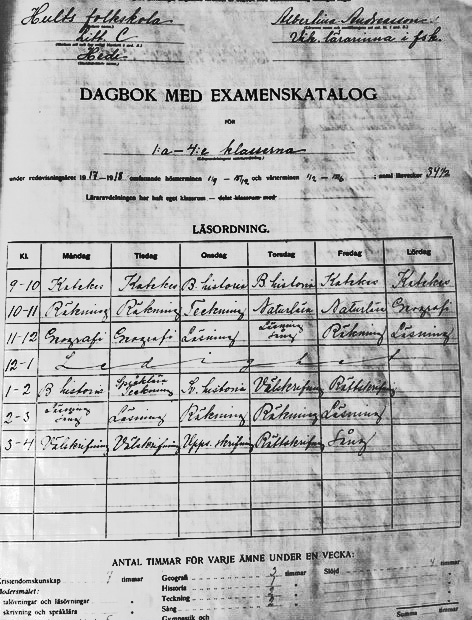 Hults folkskola
Albertina Andreasson
litt. C
Vik. lärarinna i fsk.
Hede
DAGBOK MED EXAMENSKATALOG
FÖR
1:a – 4:e klasserna
under redovisningsåret 1917–1918 omfattande höstterminen och vårterminen samt läsveckor 34½
Läraravdelningen har haft eget klassrum — delat klassrum med
LÄSORDNING.
Kl. Måndag Tisdag Onsdag Torsdag Fredag Lördag
9-10 Katekes Katekes B. historia B. historia Katekes Katekes
10-11 Räkning Räkning Teckning Naturlära Naturlära Geografi
11-12 Geografi Geografi Läsning Läsning Sång Räkning Läsning
12-1 Ledighet
1-2 B historia Språklära Teckning Sv. historia Välskrifning Rättskrifning
2-3 Läsning Sång Läsning Räkning Räkning Läsning
3-4 Välskrifning Välskrifning Upps. skrifning Rättskrifning Sång
ANTAL TIMMAR FÖR VARJE ÄMNE UNDER EN VECKA:
Kristendomskunskap 7 timmar Geografi 3 timmar Slöjd timmar
Modersmålet: Historia
talövningar och läsövningar Teckning
skrivning och språklära Sång 2
Gymnastik och Summa timmar